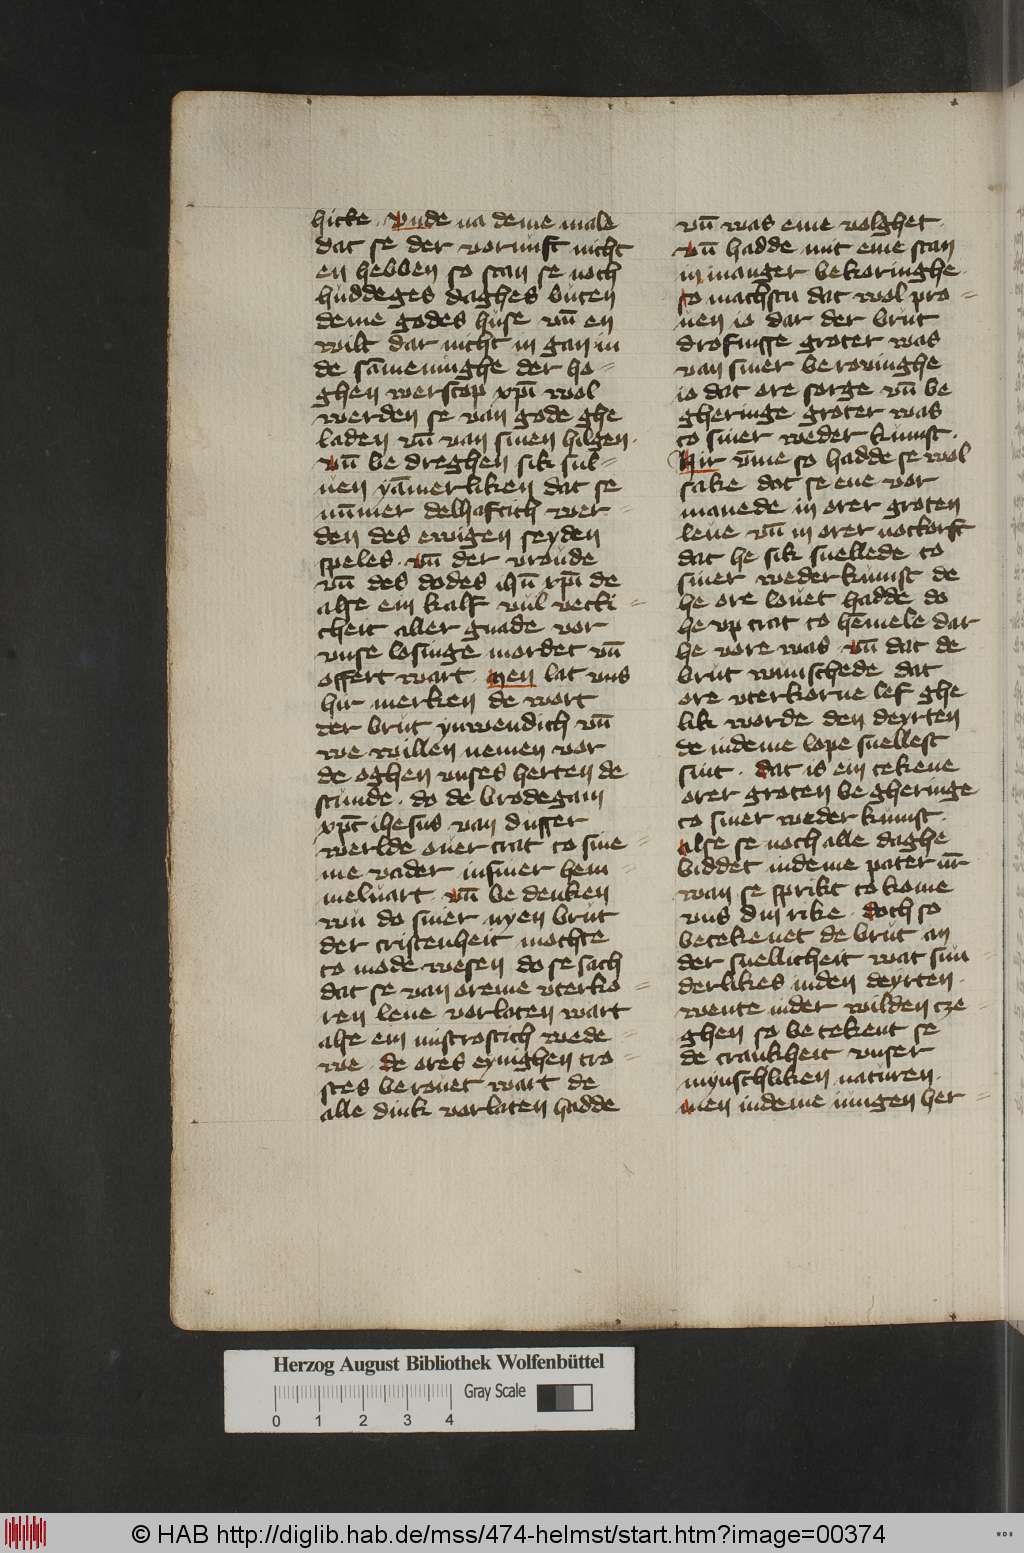 hicke · Vnde na deme male
dat se der vornuft nicht
en hebben so stan se noch
huddeges daghes buten
deme godes huse vn̄ en
wilt dar nicht in gan in
de sām̄eninghe der ho=
ghen werscop xp̄i wol
werden se van gode ghe
laden vn̄ van sinen hilgen ·
vn̄ be dreghen sik sul=
uen yām̄erliken dat se
nūmmer delhaftich wer=
den des ewigen seyden
speles · vn̄ der vroude
vn̄ des dodes ihū xp̄i de
alse ein kalf vul vecki=
cheit aller gnade vor
vnse losinge mordet vn̄
offert wart · Men lat vns
hir merken de wort
der brut ynwendich vn̄
we willen nemen vor
de oghen vnses herten de
stunde · do de brodegam
xp̄c ihesus van dusser
werlde ouer trat to sine=
me vader in siner hem=
meluart · vn̄ be denken
wu do siner nyen brut
der cristenheit mochte
to mode wesen do se sach
dat se van oreme vterko=
ren leue vorlaten wart
alse ein mistrostich wede=
we · de ores eynighen tro=
stes berouet wart de
alle dink vorlaten hadde
vn̄ was eme volghet ·
vn̄ hadde mit eme stan
in manger bekoringhe ·
so machstu dat wol pro=
uen io dar der brut
drofnisse groter was
van siner berouinghe
io dat ore sorge vn̄ be
gheringe groter was
to siner weder kumst ·
Hir vm̄e so hadde se wol
sake dat se ene vor
manede in orer groten
leue vn̄ in orer nottorft
dat he sik snellede to
siner wederkumst de
he ore louet hadde do
he vp trat to hemele dar
he vore was · vn̄ dat de
brut wunschede dat
ore vterkorne lef ghe
lik worde den deyrten
de in deme lope snellest
sint · dat is ein tekene
orer groten begheringe
to siner wederkumst ·
Alse se noch alle daghe
biddet in deme pater nr̄
wan se sprikt to kome
vns din rike · doch so
betekenet de brut an
der snellicheit wat sun=
derlikes in den deyrten ·
wente in der wilden cze=
ghen so betekent se
de crankheit vnser
mynschliken naturen ·
Men in deme iungen her=
Herzog August Bibliothek Wolfenbüttel
Gray Scale
0 1 2 3 4
© HAB http://diglib.hab.de/mss/474-helmst/start.htm?image=00374
WDB